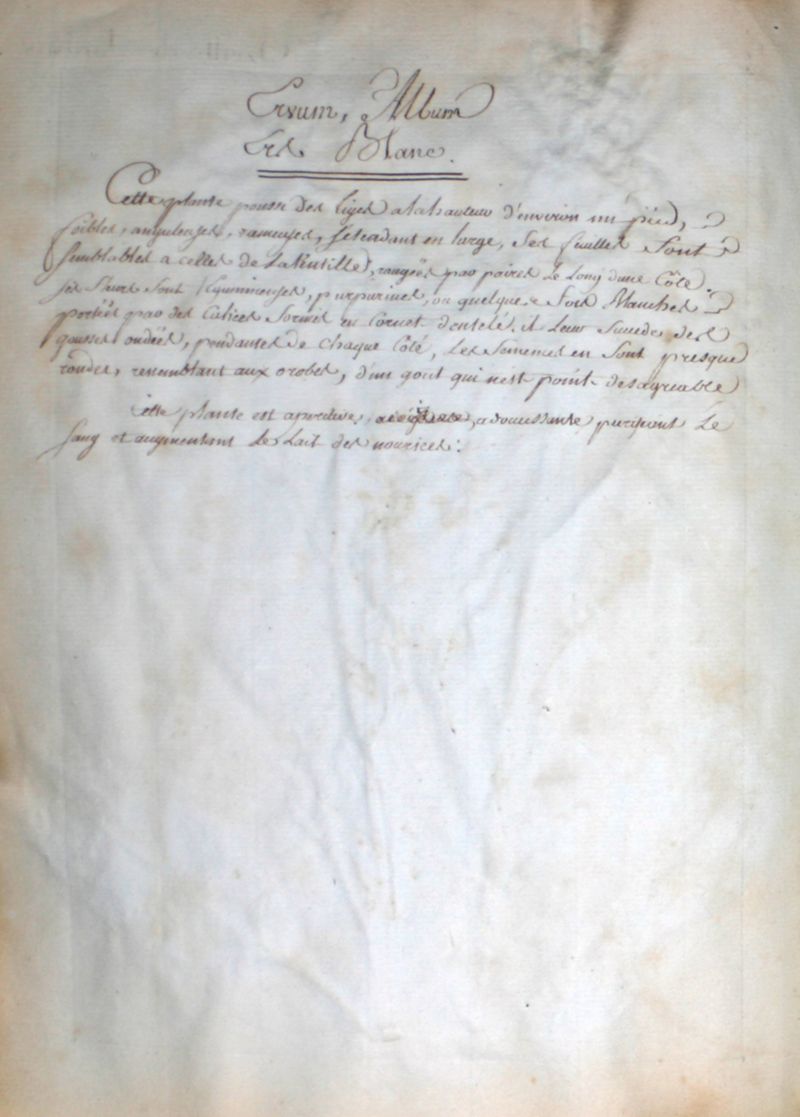 Ervum, Album
Ers Blanc.
Cette plante pousse des tiges alahauteur d'environ un pied,
foibles, anguleuses, rameuses, setendant en large, Ses feuilles Sont
Semblables a celles de La lentille, rangées par paires Le Long dune Côte.
Ses fleurs Sont légumineuses, purpurines, ou quelque fois blanches
portées par des Calices formés en Cornet dentelé. il leur Succede des
gousses ondées, pendantes de chaque Côté, Les Semences en Sont presque
rondes, ressemblant aux orobes, d'un gout qui n'est point desagreable
Cette plante est aperitive, adoucissante purifiant Le
Sang et augmentant Le Lait des nourices.